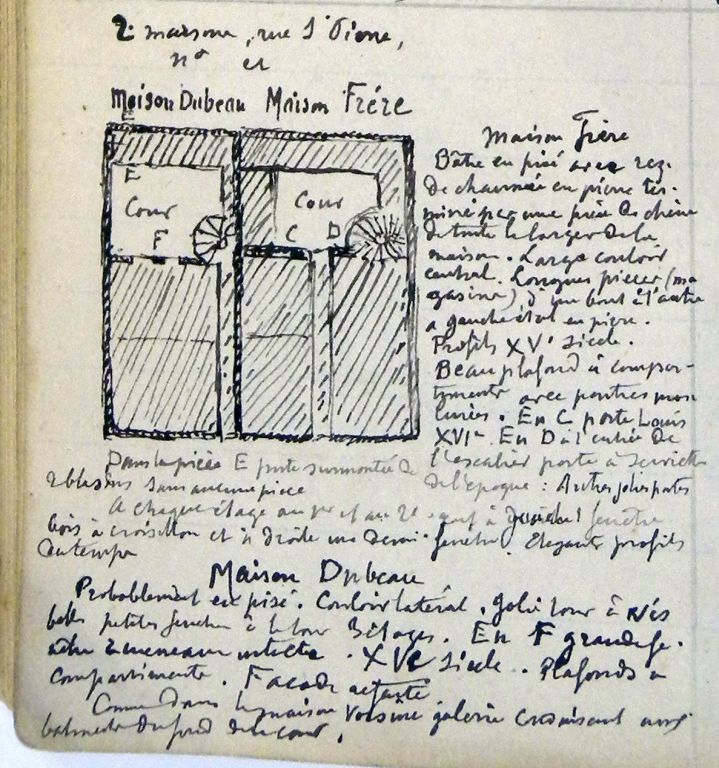 2 maisons, rue St Pierre,
nos et
Maison Dubeau Maison Frére
E
E
Cour
F
Cour
C D
Maison Frére
Bâtie en pisé avec rez-
de chaussée en pierre ter-
miné par une pièce de chêne
de toute la largeur de la
maison. Large couloir
central. Longues pièces (ma
gasins), d'un bout à l'autre
a gauche en pierre.
Profils XVe siècle.
Beau plafond à compar-
timents avec poutres mou
lurées. En C porte Louis
XVIe En D à l'entrée de
l'escalier porte à serviette
de l'époque : Autres jolies portes
Dans la pièce E porte surmontée de
2 blasons sans aucune pièce
A chaque étage au 1er et au 2e à gauche 1 fenêtre
bois à croisillon et à droite une demi-fenêtre. Elegants profils
du temps
Maison Dubeau
Probablement en pisé. Couloir latéral. Jolie tour à vis
belles petites fenêtres à la tour 3 étages. En F grande fe-
nêtre à meneaux intacte. XVe siècle. Plafonds à
compartiments. Façade refaite
Comme dans la maison voisine galerie conduisant aux
batiments du fond de la cour.